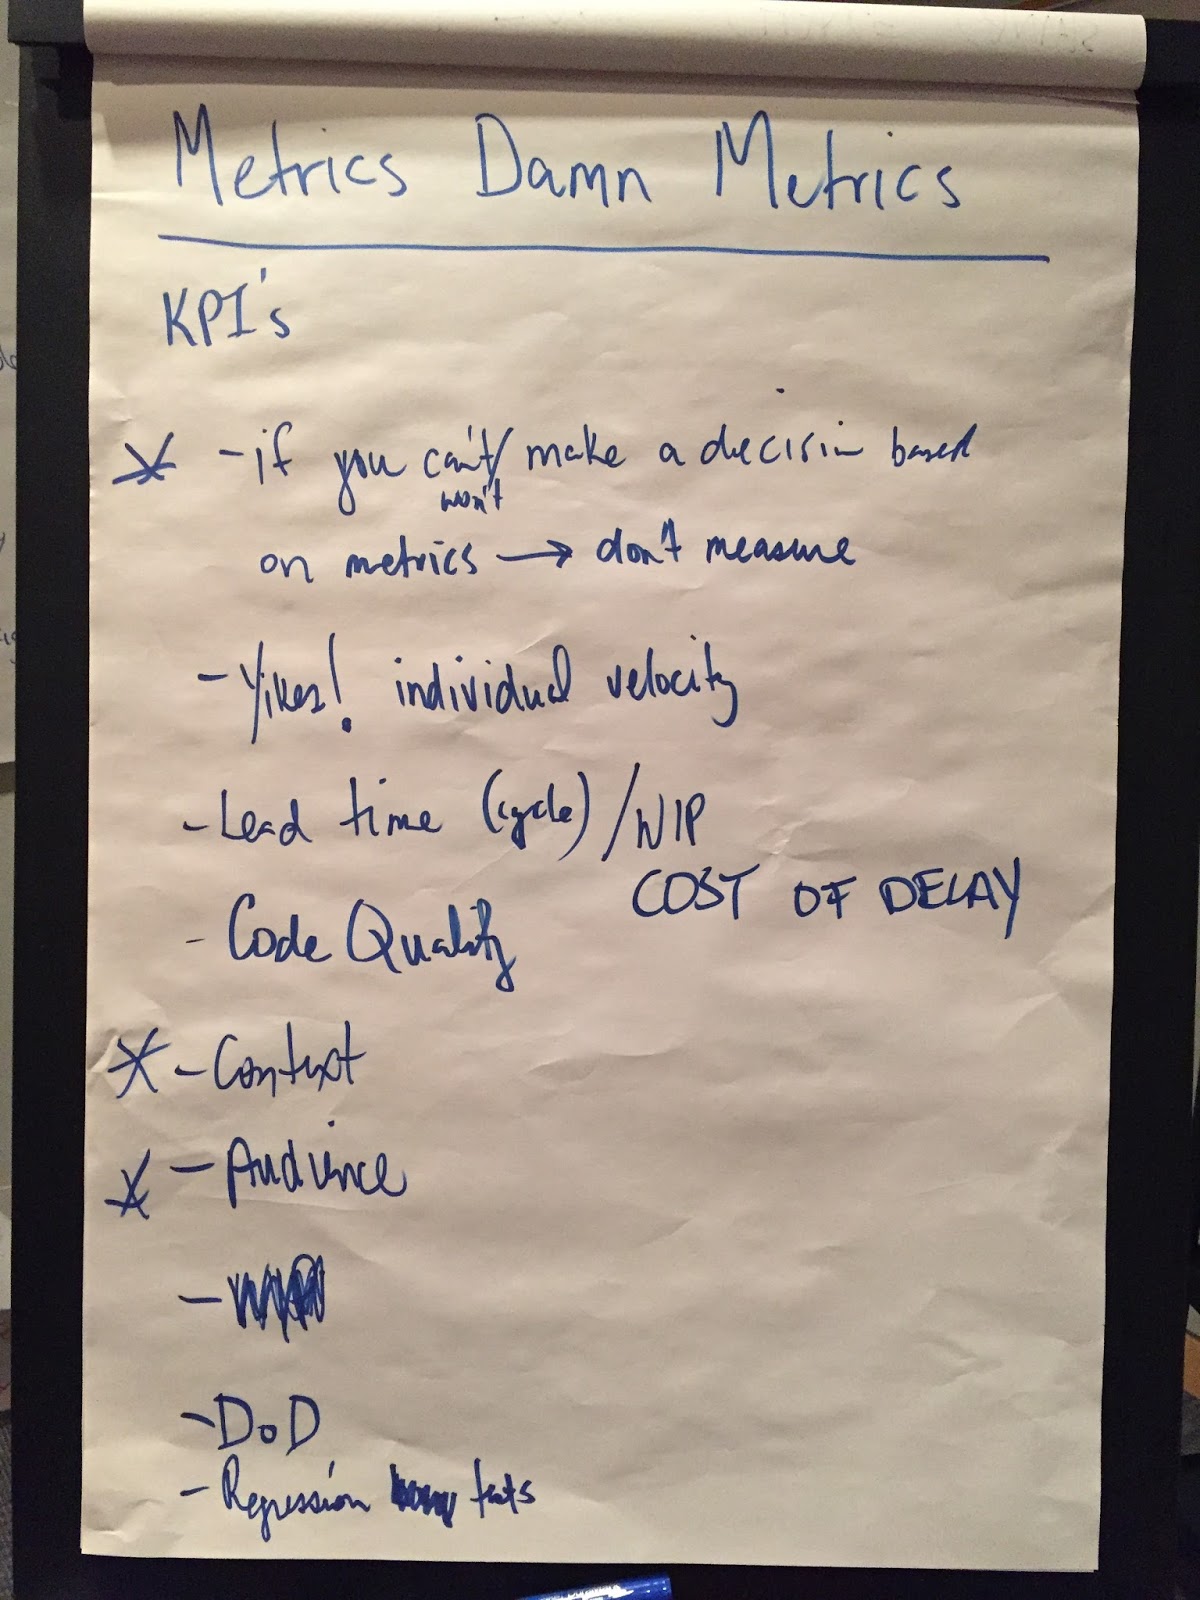 Metrics Damn Metrics
KPI's
- if you can't/ make a decision based
won't
on metrics → don't measure
- Yikes! individual velocity
- Lead time (cycle) / WIP
COST OF DELAY
- Code Quality
- Context
- Audience
-
- DoD
- Regression tests